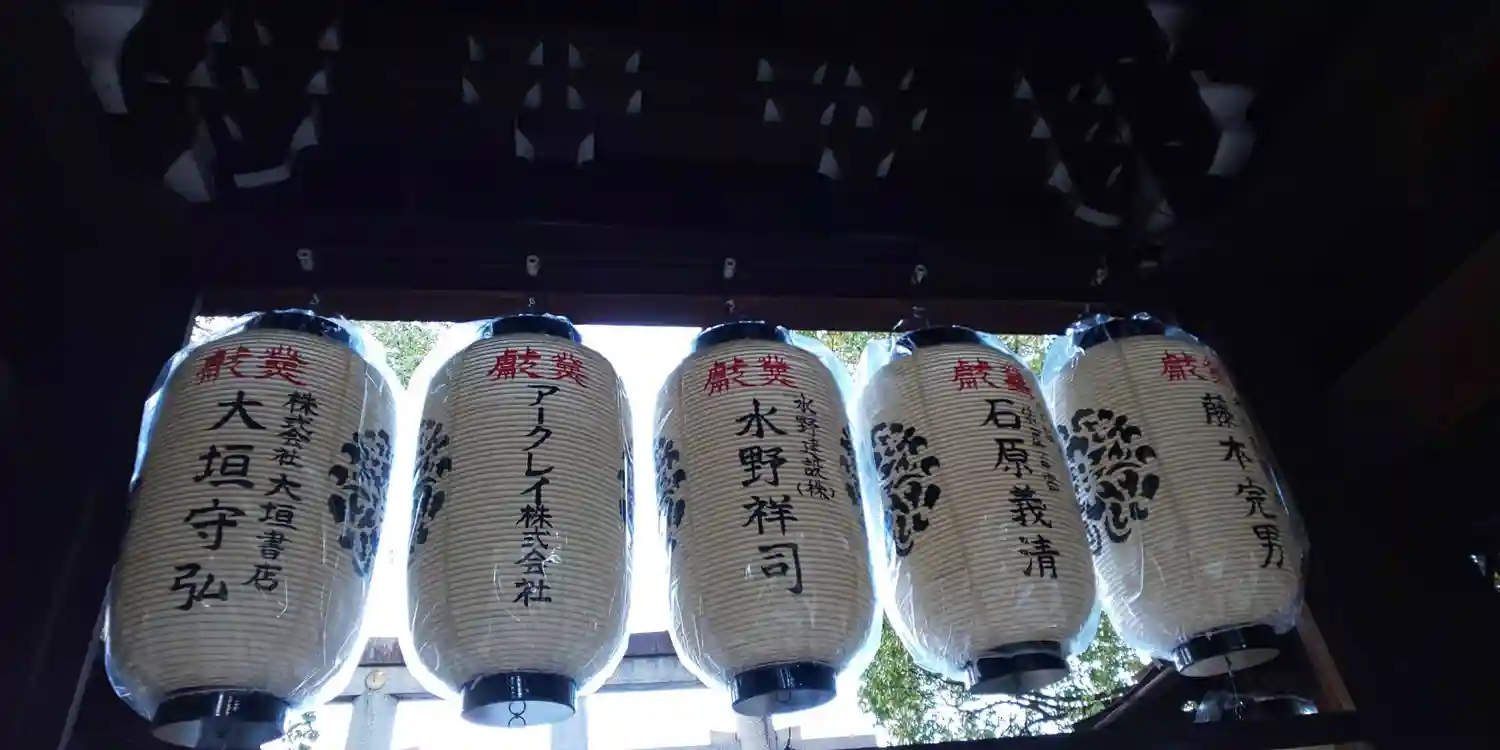 獻燈
株式会社大垣書店
大垣守弘
獻燈
アークレイ株式会社
獻燈
水野建設(株)
水野祥司
獻燈
石原義清
獻燈
藤本完男